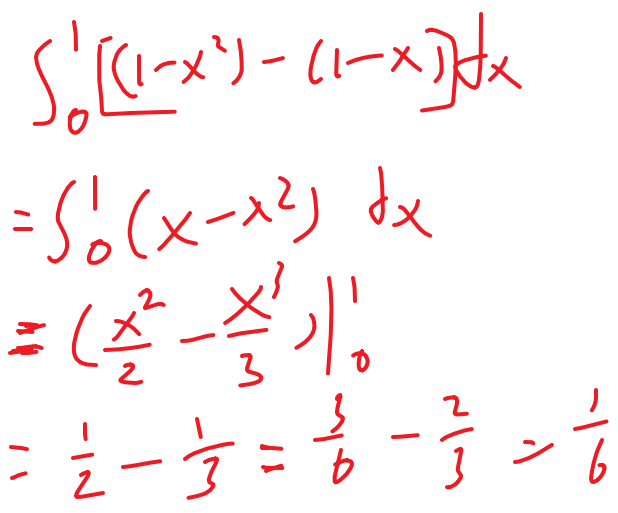 ∫₀¹ [(1-x²) - (1-x)] dx
= ∫₀¹ (x - x²) dx
= (x²/2 - x³/3) |₀¹
= 1/2 - 1/3 = 3/6 - 2/3 = 1/6